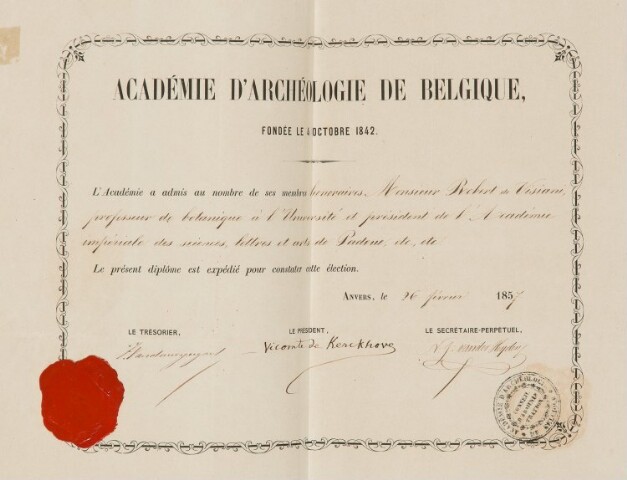 ACADÉMIE D'ARCHÉOLOGIE DE BELGIQUE,
FONDÉE LE 4 OCTOBRE 1842.
L'Académie a admis au nombre de ses membres honoraires, Monsieur Robert de Visiani,
professeur de botanique à l'Université et président de l'Académie
impériale des sciences, lettres et arts de Padoue, etc, etc
Le présent diplôme est expédié pour constater cette élection.
ANVERS, le 26 février 1857
LE TRÉSORIER, LE PRÉSIDENT, LE SECRÉTAIRE-PERPÉTUEL,
Vicomte de Kerckhove